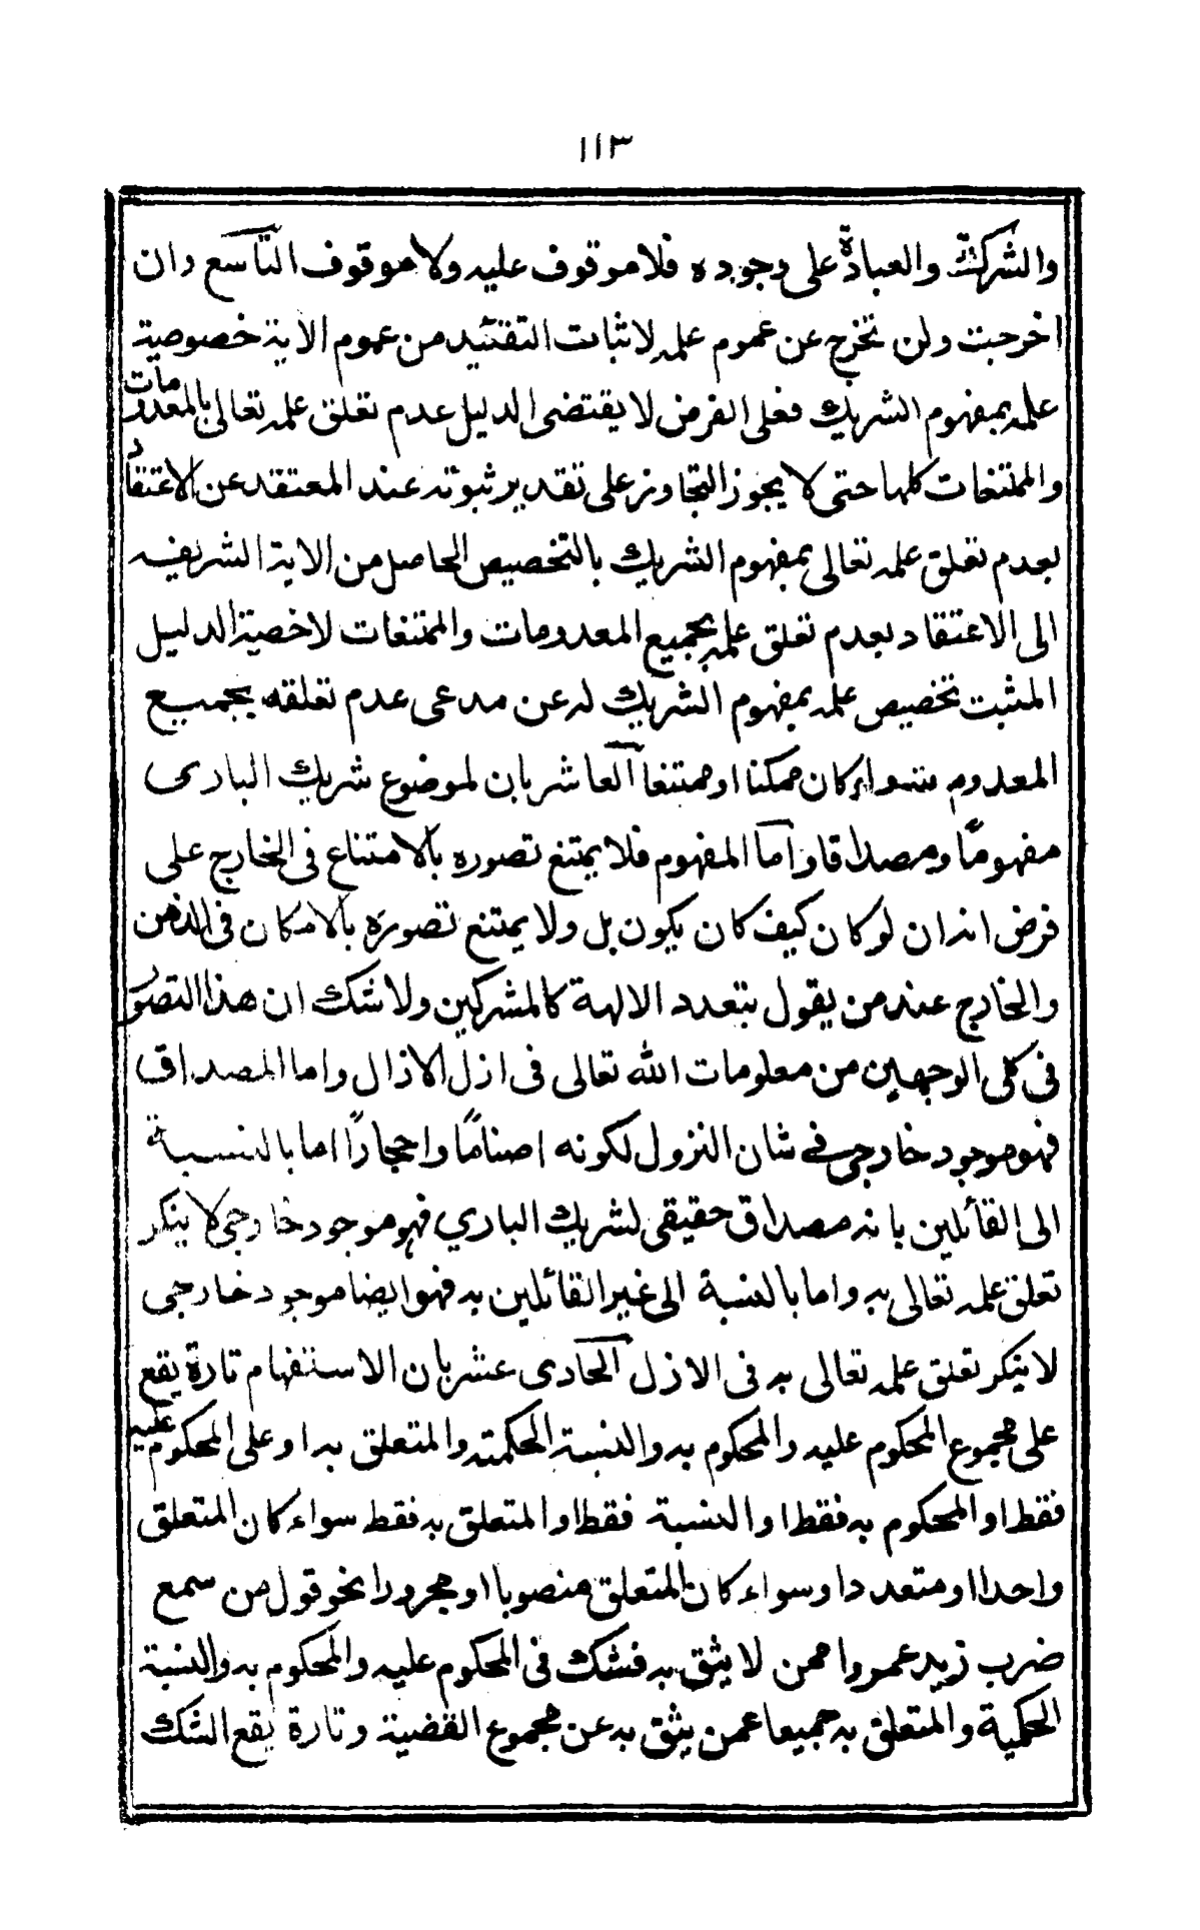 ١١٣
والشركة والعبادة على وجوده فلا موقوف عليه ولا موقوف التاسع وان
اخرجت ولن تخرج عن عموم علمه لاثبات التقئيد من عموم الاية خصوصية
علمه بمفهوم الشريك فعلى الفرض لا يقتضى الدليل عدم تعلق علمه تعالى بالمعدومات
والممتنعات كلها حتى لا يجوز التجاوز على تقدير ثبوته عند المعتقد عن الاعتقاد
بعدم تعلق علمه تعالى بمفهوم الشريك بالتخصيص الحاصل من الاية الشريفه
الى الاعتقاد بعدم تعلق علمه بجميع المعدومات والممتنعات لاخصية الدليل
المثبت تخصيص علمه بمفهوم الشريك له عن مدعى عدم تعلقه بجميع
المعدوم سواء كان ممكنا او ممتنعا العاشر بان لموضوع شريك البارى
مفهومًا ومصداقا واما المفهوم فلا يمتنع تصوره بالامتناع فى الخارج على
فرض انه ان لو كان كيف كان يكون بل ولا يمتنع تصوره بالامكان فى الذهن
والخارج عند من يقول بتعدد الالهة كالمشركين ولا شك ان هذا التصور
فى كلى الوجهين من معلومات الله تعالى فى ازل الازال واما المصداق
فهو موجود خارجى فے شان النزول لكونه اصنامًا واحجارًا اما بالنسبة
الى القائلين بانه مصداق حقيقى لشريك الباري فهو موجود خارجى لا ينكر
تعلق علمه تعالى به واما بالنسبة الى غير القائلين به فهو ايضا موجود خارجى
لا ينكر تعلق علمه تعالى به فى الازل الحادى عشر بان الاستفهام تارة يقع
على مجموع المحكوم عليه والمحكوم به والنسبة الحكمته والمتعلق به او على المحكوم عليه
فقط او المحكوم به فقط او النسبة فقط او المتعلق به فقط سواء كان المتعلق
واحدا او متعددا وسواء كان المتعلق منصوبا او مجرورا نحو قول من سمع
ضرب زيد عمروا ممن لا يثق به فشك فى المحكوم عليه والمحكوم به والنسبة
الحكمية والمتعلق به جميعا عمن يثق به عن مجموع القضية وتارة يقع الشك